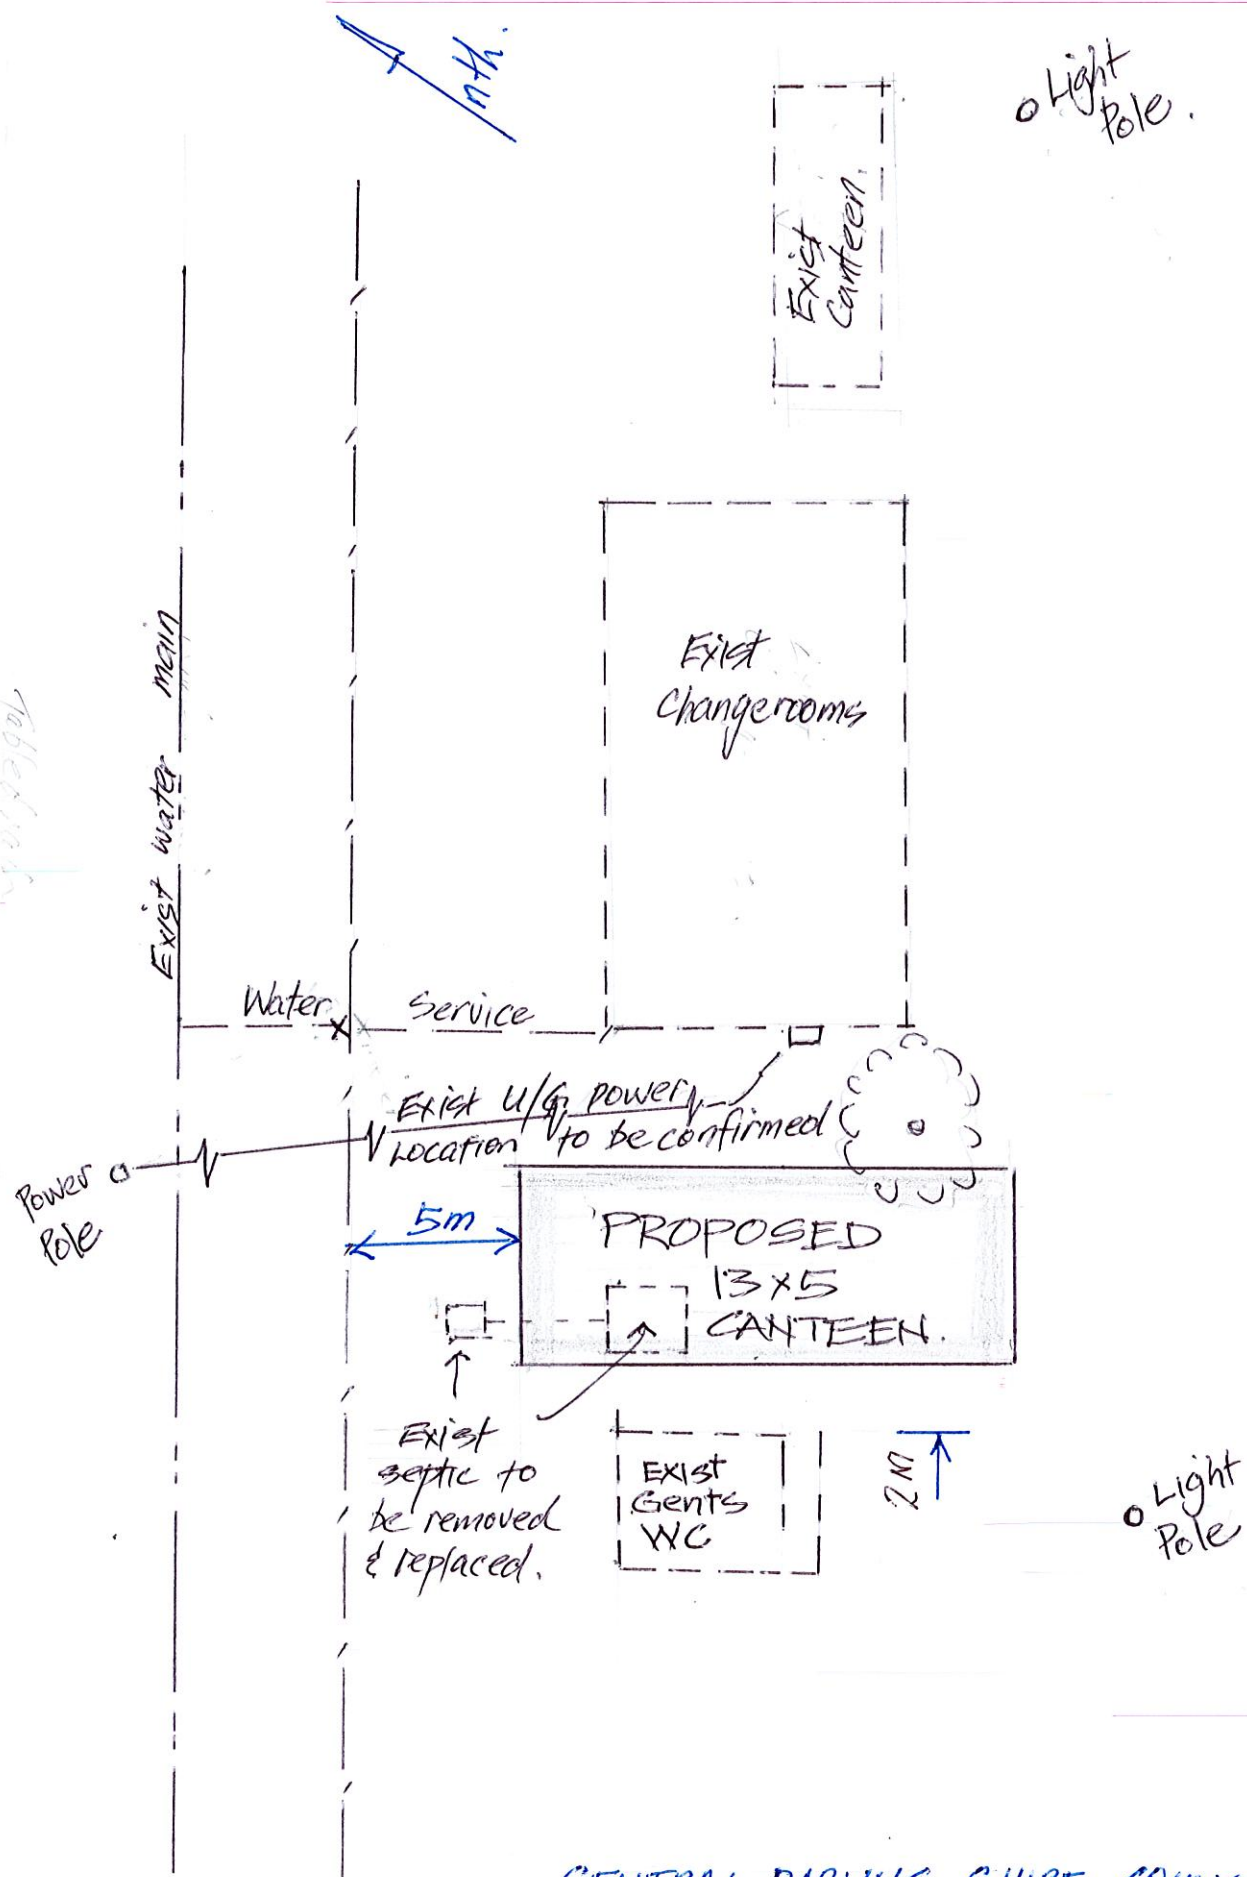 nth.
Light
Pole.
Exist
Canteen.
Exist
Changerooms
Exist water main
Water
Service
Exist U/G power
Location to be confirmed
Power
Pole
5m
PROPOSED
13x5
CANTEEN.
Exist
septic to
be removed
& replaced.
Exist
Gents
WC
2M
Light
Pole